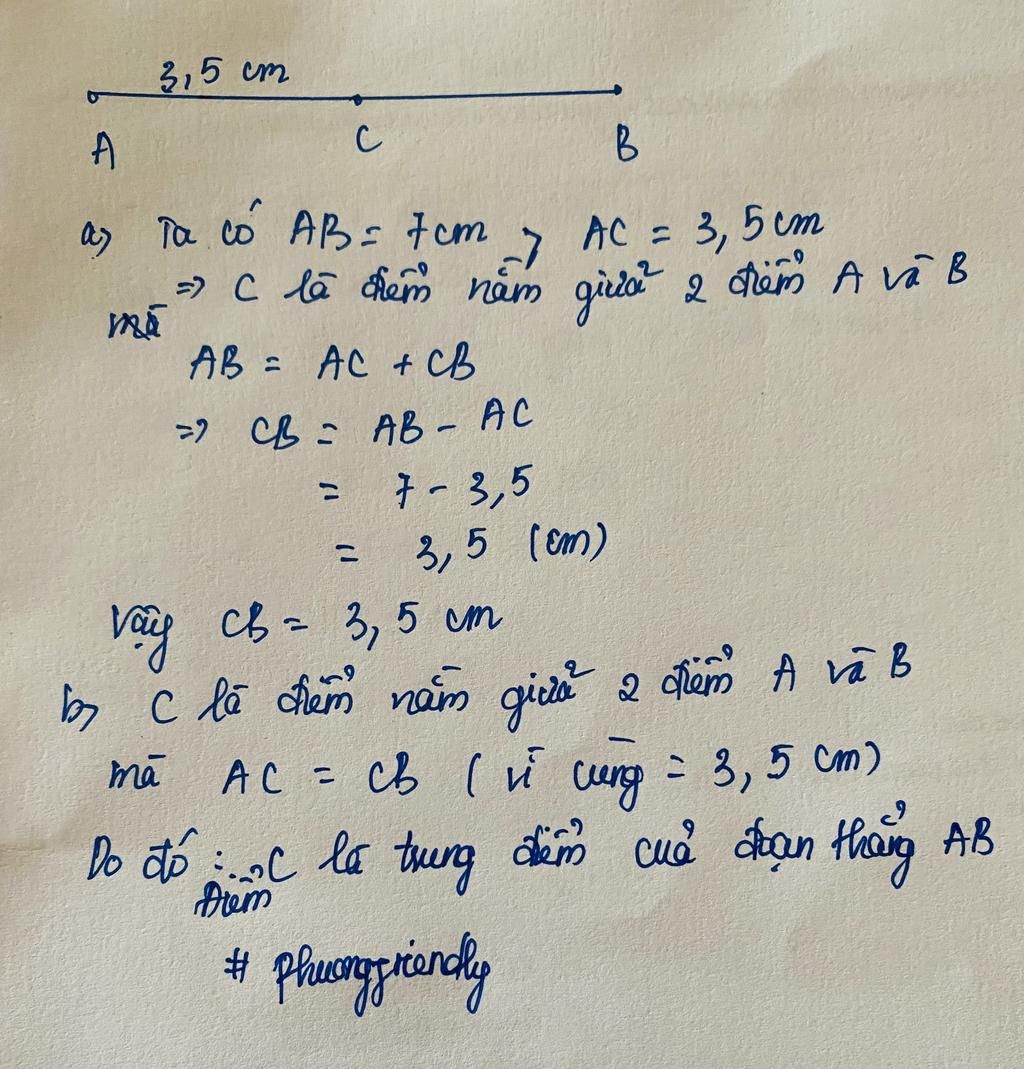 3,5 cm
A C B
a) Ta có AB = 7cm > AC = 3,5cm
=> C là điểm nằm giữa 2 điểm A và B
mà
AB = AC + CB
=> CB = AB - AC
= 7 - 3,5
= 3,5 (cm)
Vậy CB = 3,5 cm
b) C là điểm nằm giữa 2 điểm A và B
mà AC = CB ( vì cùng = 3,5 cm)
Do đó : Điểm C là trung điểm của đoạn thẳng AB
# phuongfriendly